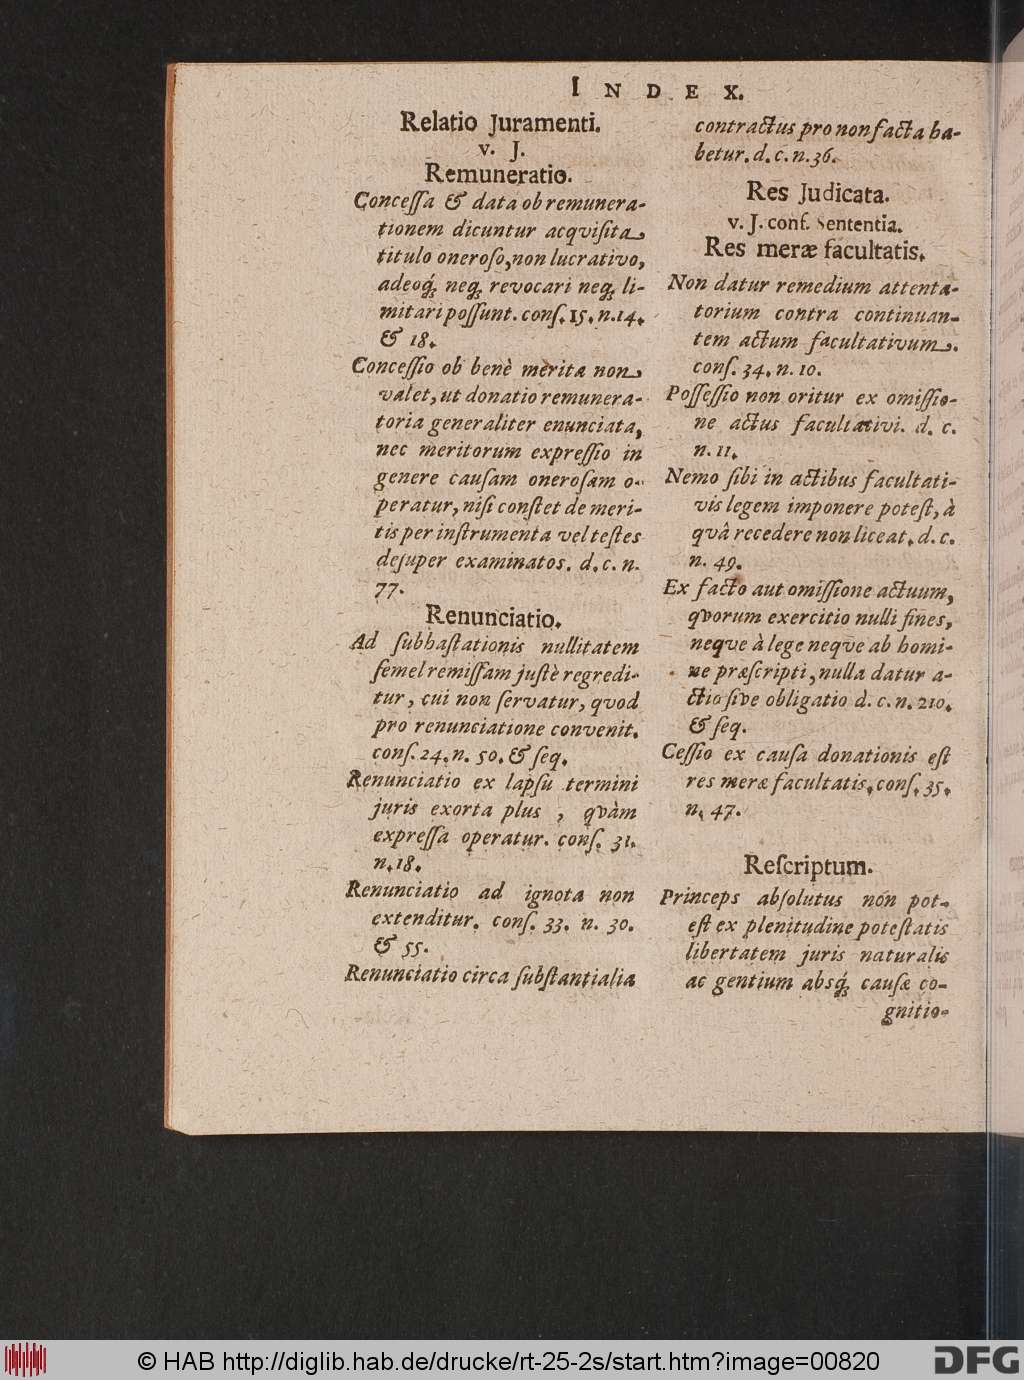 INDEX.
Relatio Juramenti.
v. J.
Remuneratio.
Concessa & data ob remunera-
tionem dicuntur acqvisita
titulo oneroso, non lucrativo,
adeoq́; neq́; revocari neq́; li-
mitari possunt. conſ. 15. n. 14.
& 18.
Conceſſio ob benè merita non
valet, ut donatio remunera-
toria generaliter enunciata,
nec meritorum expreſſio in
genere cauſam oneroſam o-
peratur, niſi conſtet de meri-
tis per inſtrumenta vel teſtes
deſuper examinatos. d. c. n.
77.
Renunciatio.
Ad ſubhaſtationis nullitatem
ſemel remiſſam juſtè regredi-
tur, cui non ſervatur, qvod
pro renunciatione convenit.
conſ. 24. n. 50. & ſeq.
Renunciatio ex lapſu termini
juris exorta plus, qvàm
expreſſa operatur. conſ. 31.
n. 18.
Renunciatio ad ignota non
extenditur. conſ. 33. n. 30.
& 55.
Renunciatio circa ſubſtantialia
contractus pro non facta ha-
betur. d. c. n. 36.
Res Judicata.
v. J. conf. Sententia.
Res meræ facultatis.
Non datur remedium attenta-
torium contra continuan-
tem actum facultativum.
conſ. 34. n. 10.
Poſſeſſio non oritur ex omiſſio-
ne actus facultativi. d. c.
n. 11.
Nemo ſibi in actibus facultati-
vis legem imponere poteſt, à
quâ recedere non liceat. d. c.
n. 49.
Ex facto aut omiſſione actuum,
qvorum exercitio nulli fines,
neque à lege neqve ab homi-
ne præſcripti, nulla datur a-
ctio ſive obligatio d. c. n. 210.
& ſeq.
Ceſſio ex cauſa donationis eſt
res meræ facultatis. conſ. 35.
n. 47.
Reſcriptum.
Princeps abſolutus non pot-
eſt ex plenitudine poteſtatis
libertatem juris naturalis
ac gentium absq́; cauſæ co-
gnitio-
© HAB http://diglib.hab.de/drucke/rt-25-2s/start.htm?image=00820
DFG